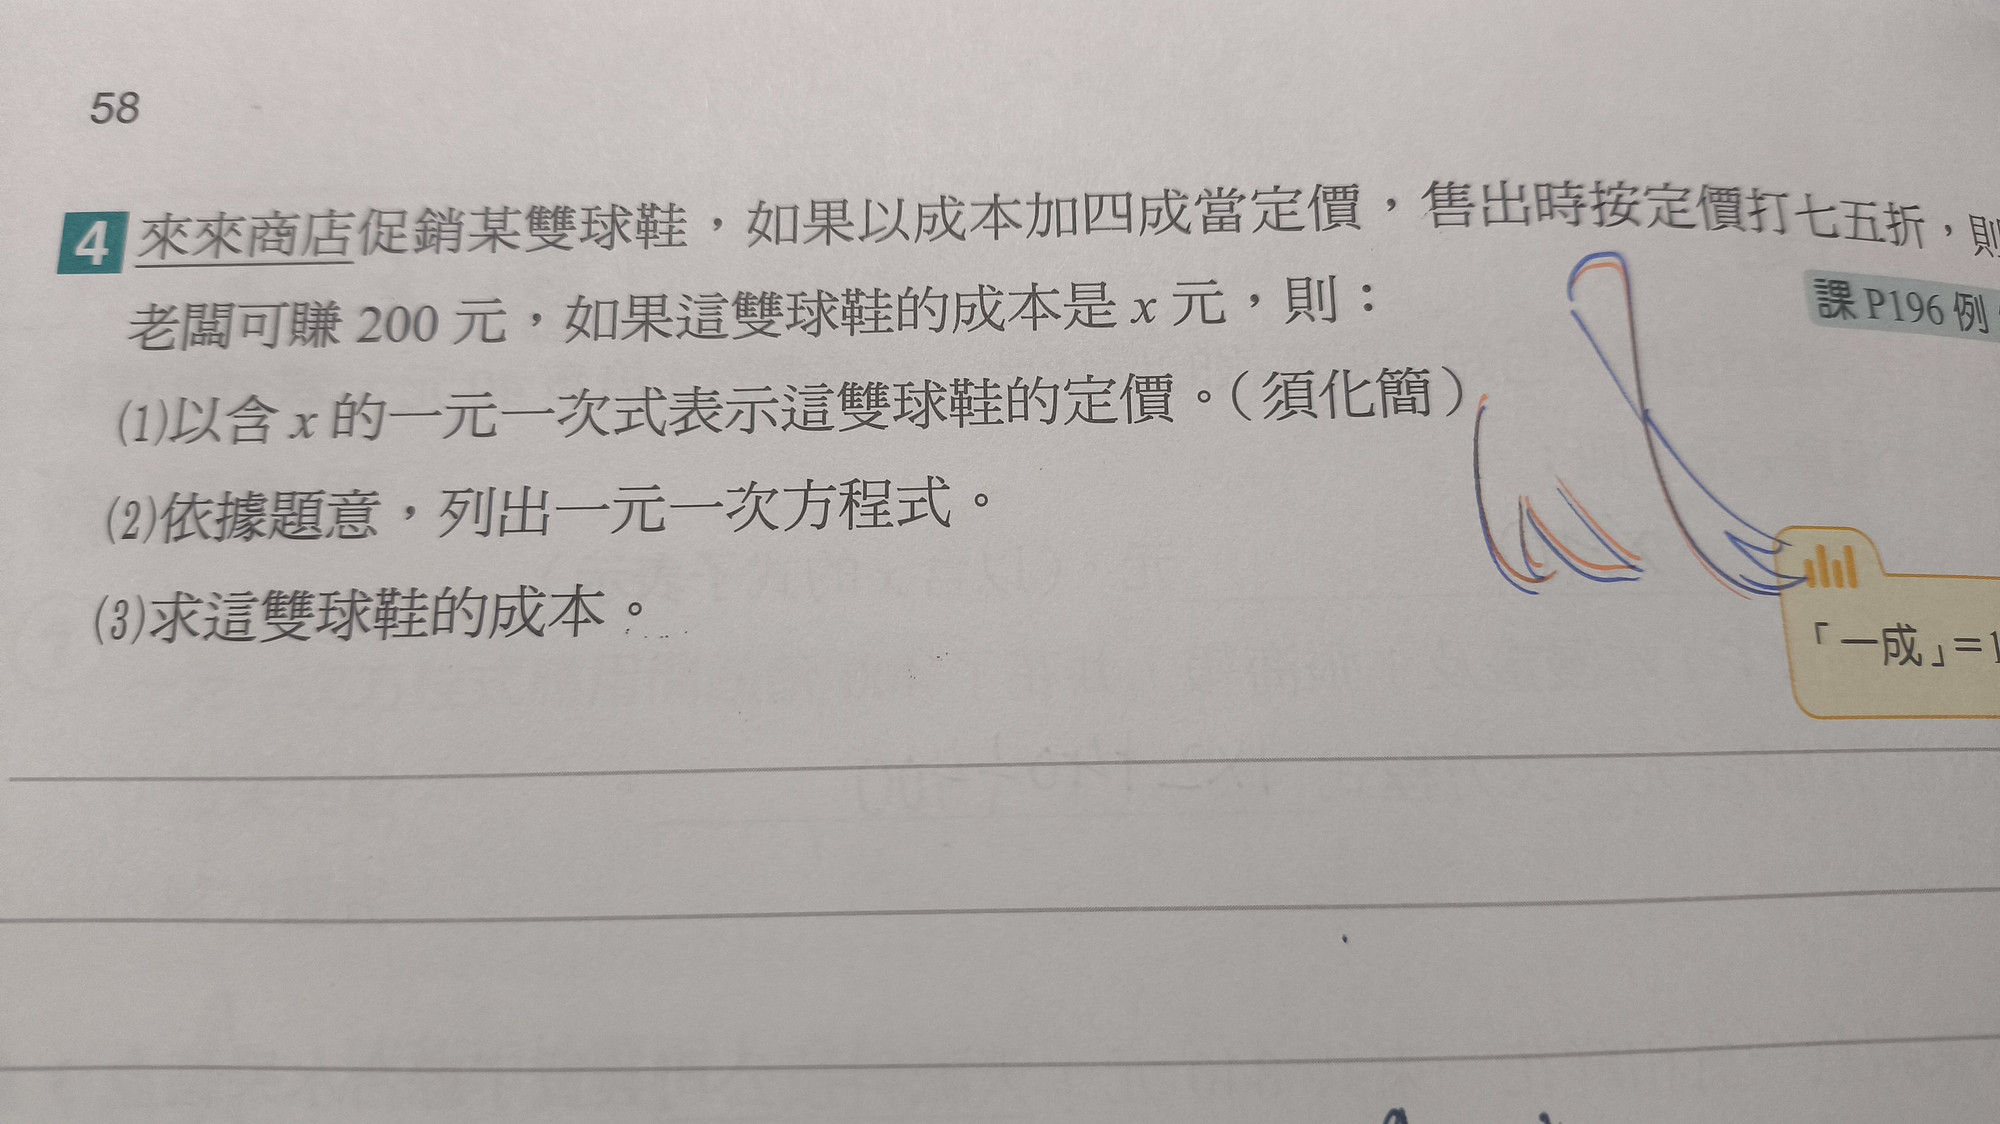 58
4 來來商店促銷某雙球鞋，如果以成本加四成當定價，售出時按定價打七五折，則
老闆可賺 200 元，如果這雙球鞋的成本是 x 元，則：
課 P196 例
(1)以含 x 的一元一次式表示這雙球鞋的定價。（須化簡）
(2)依據題意，列出一元一次方程式。
(3)求這雙球鞋的成本。
「一成」＝1